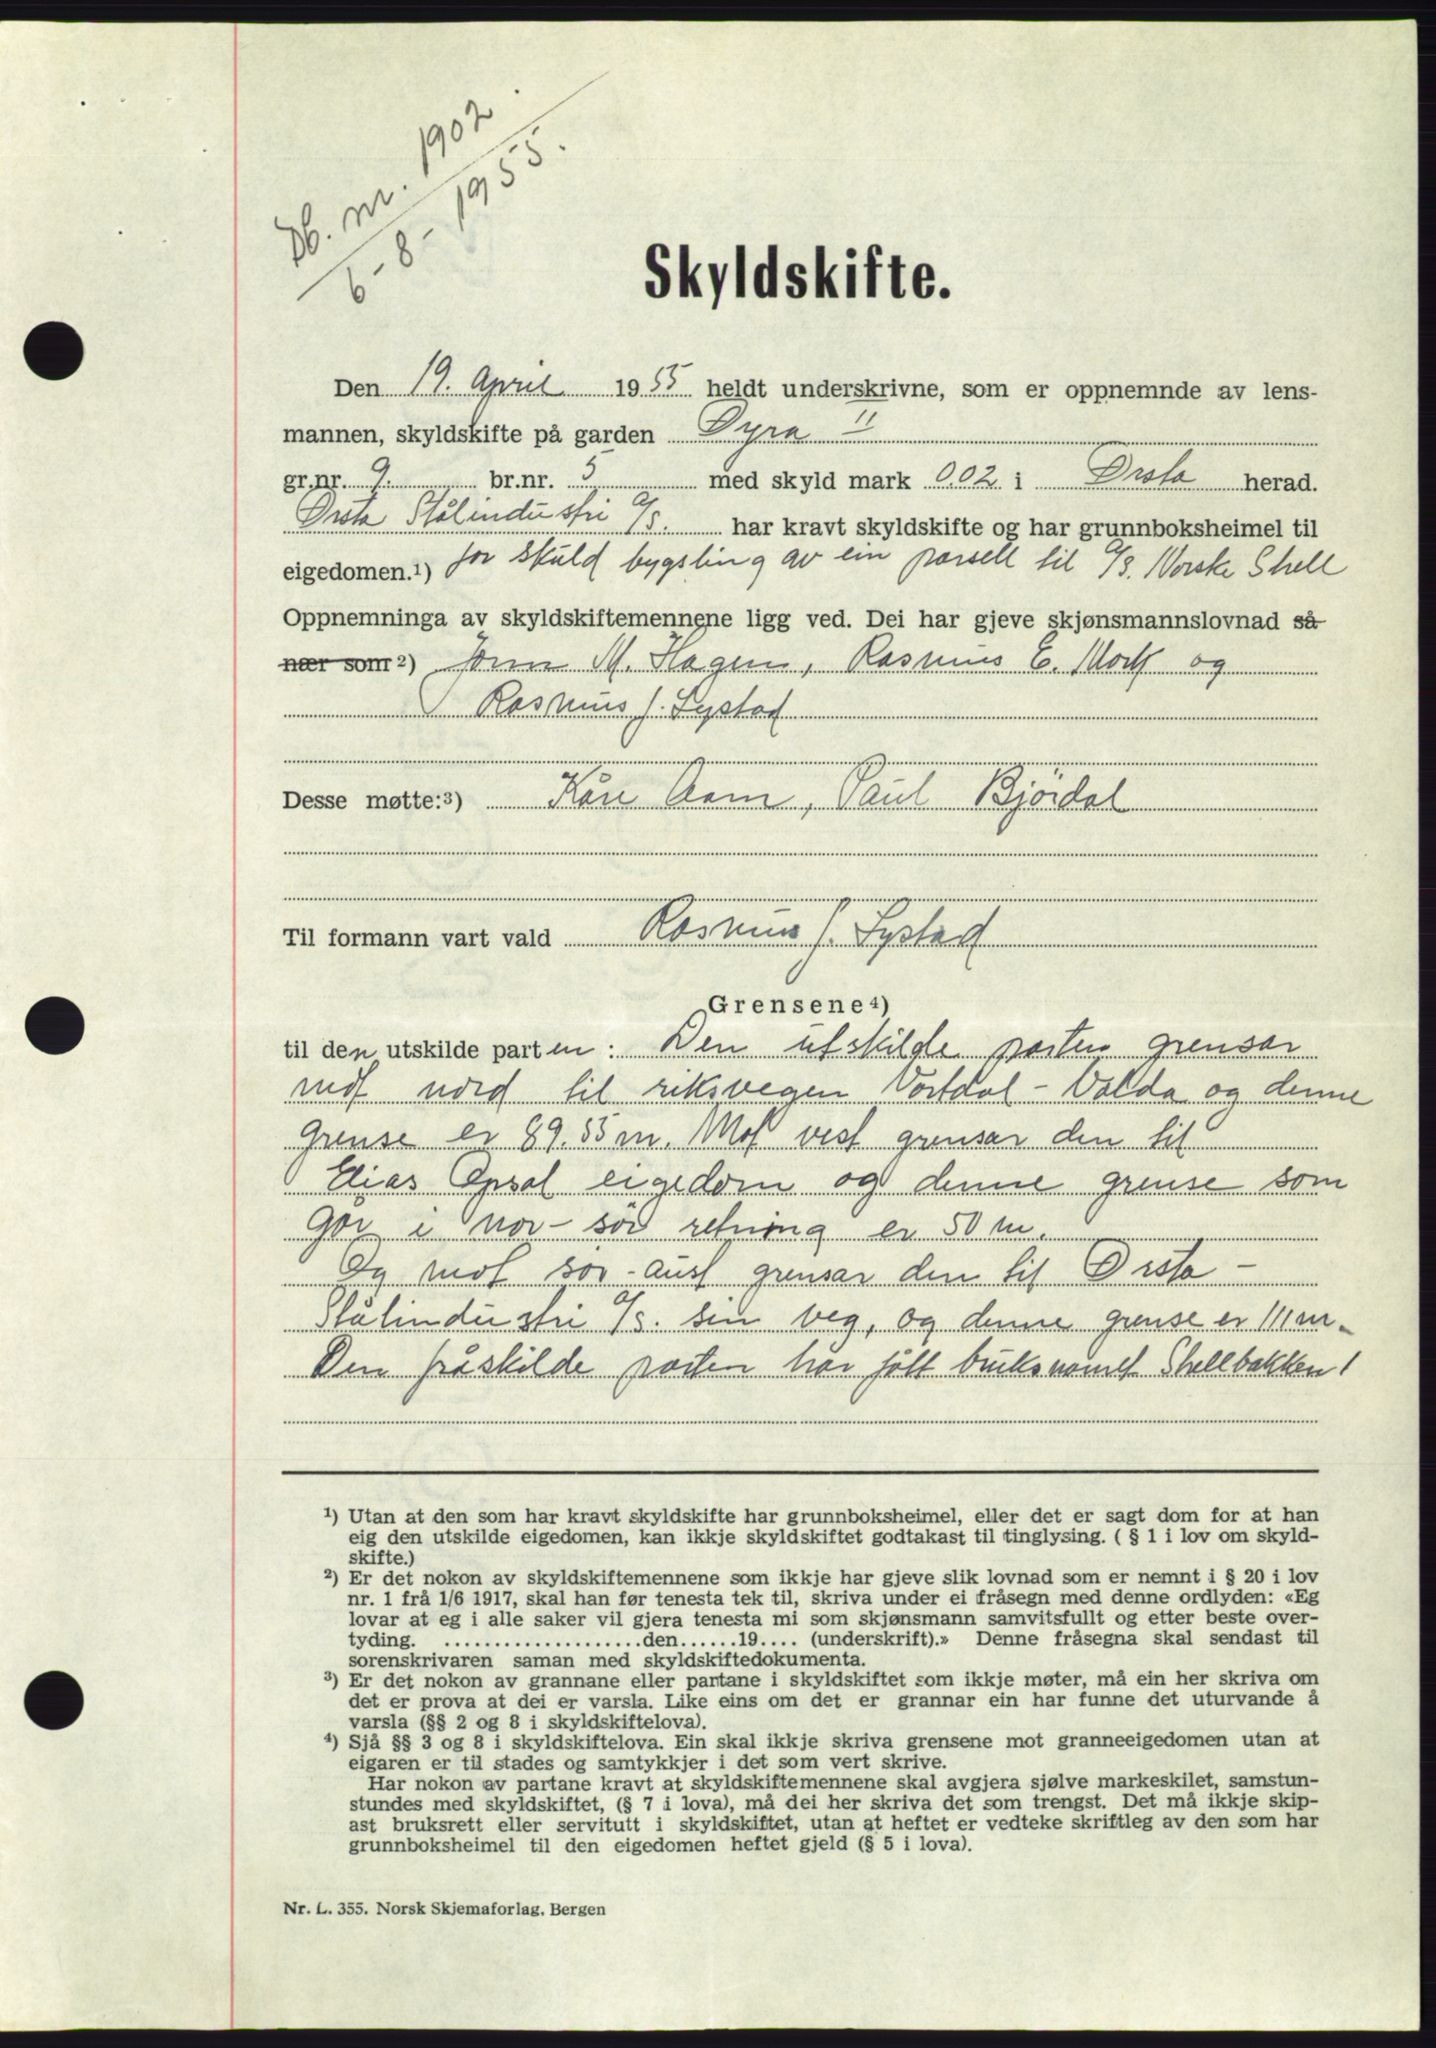 Db. nr. 1902
6-8-1955.
Skyldskifte.
Den 19. April 1955 heldt underskrivne, som er oppnemnde av lens-
mannen, skyldskifte på garden Dyra II
gr.nr. 9. br.nr. 5 med skyld mark 0.02 i Ørsta herad.
Ørsta Stålindustri A/S. har kravt skyldskifte og har grunnboksheimel til
eigedomen.¹) for skuld bygsling av ein parsell til A/S. Norske Shell
Oppnemninga av skyldskiftemennene ligg ved. Dei har gjeve skjønsmannslovnad så
nær som ²) M. Hagen, Rasmus E. Mork og
Rasmus J. Systad
Desse møtte:³) Kåre Aam, Paul Björdal
Til formann vart vald Rasmus J. Systad
Grensene⁴)
til den utskilde parten: Den utskilde parten grensar
mot nord til riksvegen Vartdal - Volda og denne
grense er 89.55 m. Mot vest grensar den til
Elias Opsal eigedom og denne grense som
går i nor - sör retning er 50 m.
Og mot sör - aust grensar den til Ørsta -
Stålindustri A/S. sin veg, og denne grense er 111 m.
Den fråskilde parten har fått bruksnamet Shellbakken 1
¹) Utan at den som har kravt skyldskifte har grunnboksheimel, eller det er sagt dom for at han
eig den utskilde eigedomen, kan ikkje skyldskiftet godtakast til tinglysing. ( § 1 i lov om skyld-
skifte.)
²) Er det nokon av skyldskiftemennene som ikkje har gjeve slik lovnad som er nemnt i § 20 i lov
nr. 1 frå 1/6 1917, skal han før tenesta tek til, skriva under ei fråsegn med denne ordlyden: «Eg
lovar at eg i alle saker vil gjera tenesta mi som skjønsmann samvitsfullt og etter beste over-
tyding. ....................den......19.... (underskrift).» Denne fråsegna skal sendast til
sorenskrivaren saman med skyldskiftedokumenta.
³) Er det nokon av grannane eller partane i skyldskiftet som ikkje møter, må ein her skriva om
det er prova at dei er varsla. Like eins om det er grannar ein har funne det uturvande å
varsla (§§ 2 og 8 i skyldskiftelova).
⁴) Sjå §§ 3 og 8 i skyldskiftelova. Ein skal ikkje skriva grensene mot granneeigedomen utan at
eigaren er til stades og samtykkjer i det som vert skrive.
Har nokon av partane kravt at skyldskiftemennene skal avgjera sjølve markeskilet, samstun-
stundes med skyldskiftet, (§ 7 i lova), må dei her skriva det som trengst. Det må ikkje skip-
ast bruksrett eller servitutt i skyldskiftet, utan at heftet er vedteke skriftleg av den som har
grunnboksheimel til den eigedomen heftet gjeld (§ 5 i lova).
Nr. L. 355. Norsk Skjemaforlag. Bergen